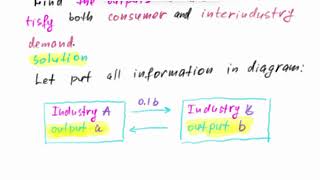 Find the outputs
tisfy both consumer and interindustry
demand.
solution
Let put all information in diagram:
Industry A 0.1b Industry B
output a output b